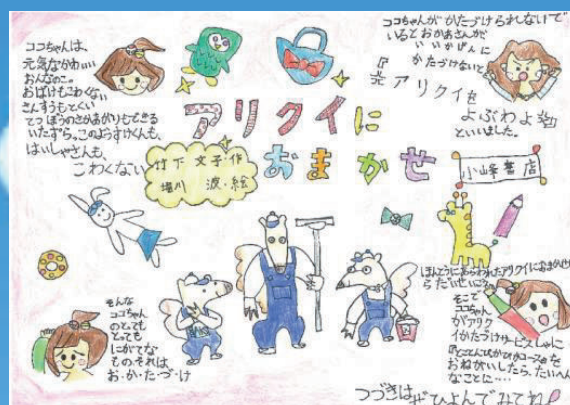 ココちゃんは、
元気なかわいい
おんなのこ。
おばけもこわくない
さんすうもとくい
てつぼうのさかあがりもできる
いたずらっこのようすけくんも、
はいしゃさんも、
こわくない
ココちゃんがかたづけられないで
いるとおかあさんが
いいかげんに
かたづけないと
アリクイを
よぶわよ
といいました。
アリクイに
おまかせ
竹下文子・作
堀川波・絵
小峰書店
そんな
ココちゃん
のとっても
とっても
にがてな
もの、それは
お・か・た・づ・け
ほんとうにあらわれたアリクイにおまかけ
らだいたいこ
そこで
ココちゃん
がアリク
イかたづけサービスしゃに
『とことんぴかぴかコース』を
おねがいしたら、たいへん
なことに・・・・
つづきはぜひよんでみてね